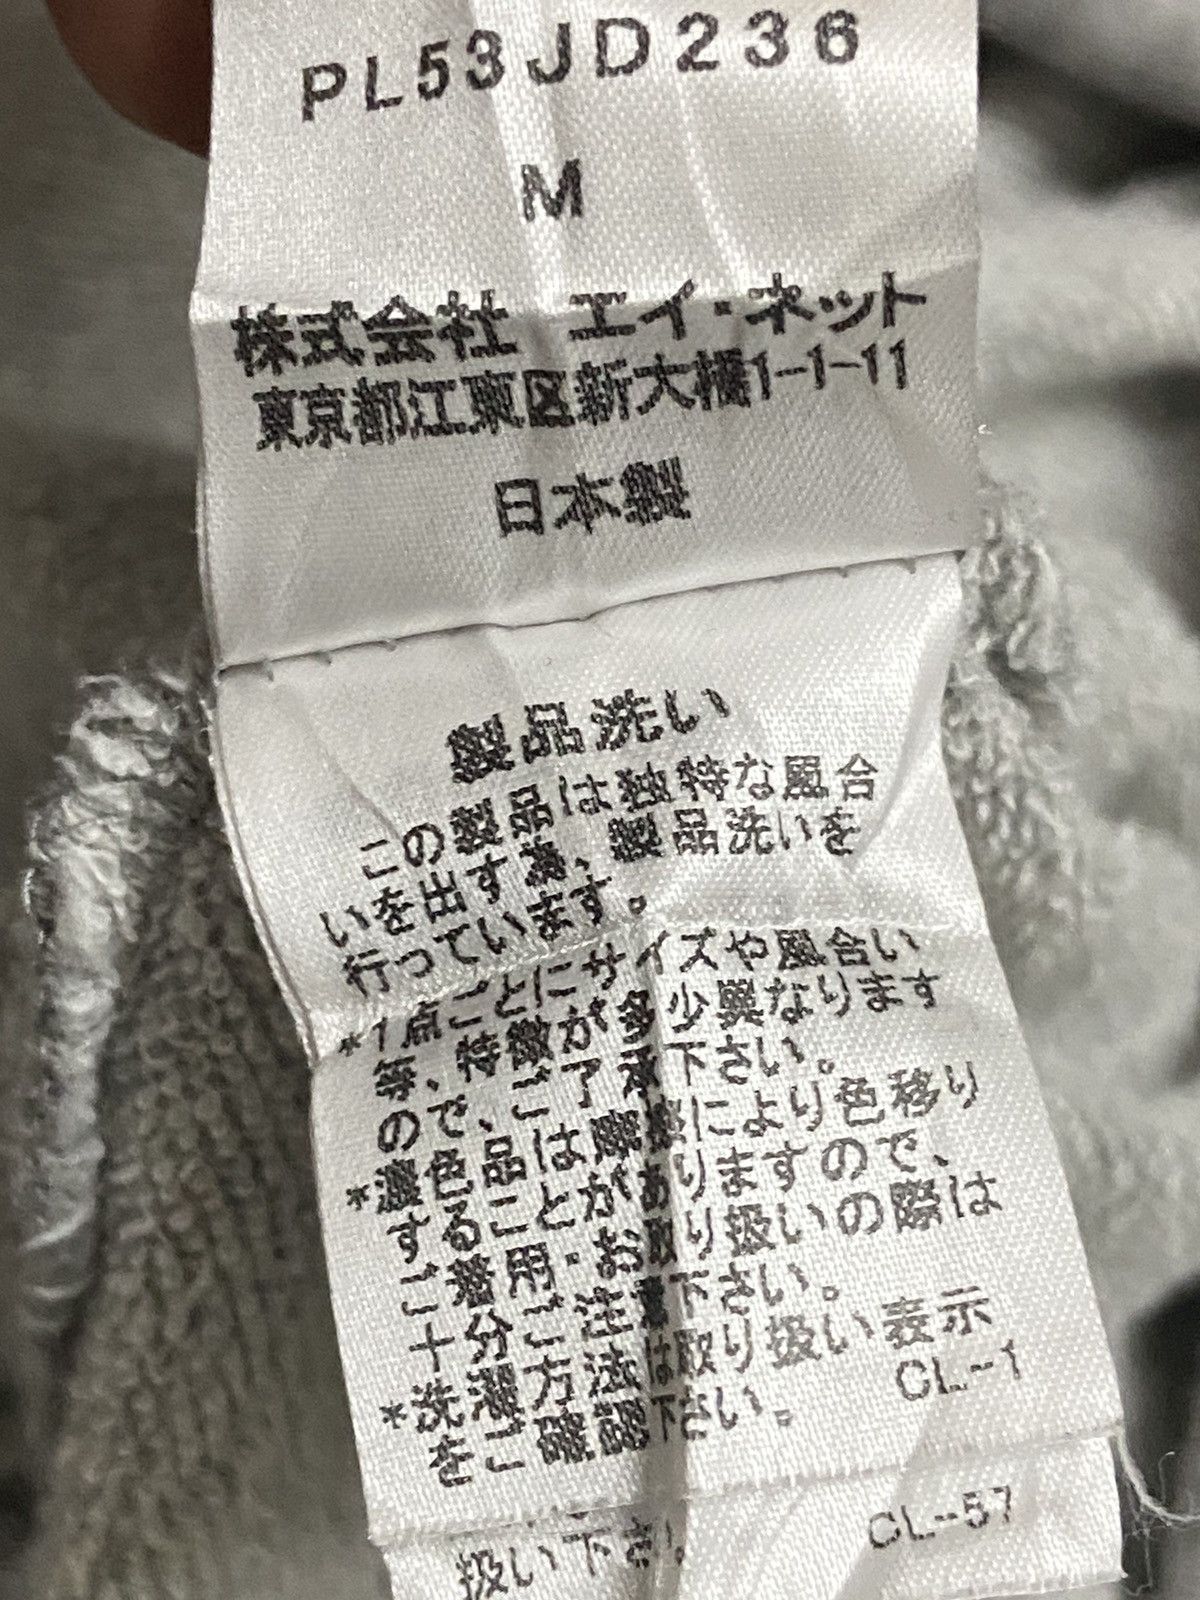 PL53JD236
M
株式会社 エイ・ネット
東京都江東区新大橋1-1-11
日本製
製品洗い
この製品は独特な風合
いを出す為、製品洗いを
行っています。
*1点ごとにサイズや風合い
等、特徴が多少異なります
ので、ご了承下さい。
*濃色品は摩擦により色移り
することがありますので、
ご着用・お取り扱いの際は
十分ご注意下さい。
*洗濯方法は取り扱い表示
をご確認下さい。 CL-1
扱い下さい。 CL-57